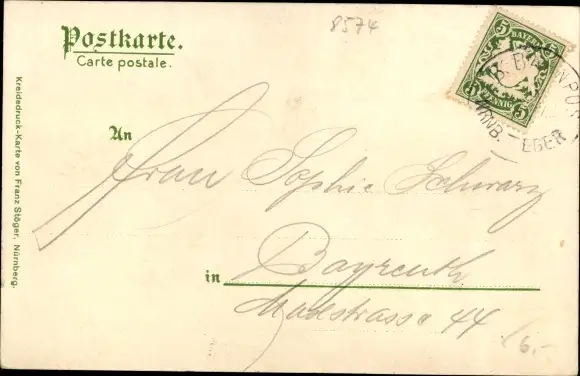 8574
Postkarte.
Carte postale.
5 BAYERN 5
5 PFENNIG 5
K. B.
NRNB. — EGER
An
Frau Sophie Schwarz
in Bayreuth
strasse 44
6.-
Kreidedruck-Karte von Franz Stöger, Nürnberg.